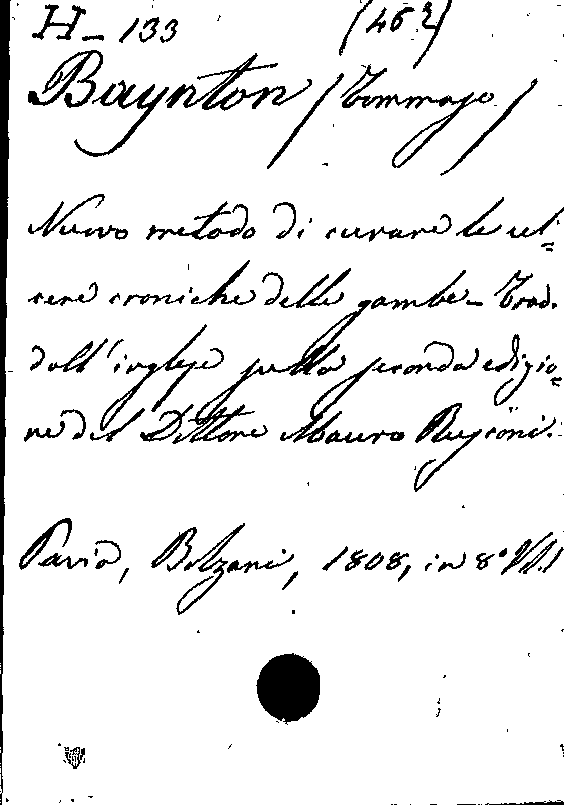 H - 133 (46²)
Baynton (Tommaso)
Nuovo metodo di curare le ul=
cere croniche delle gambe - Trad.
dall'inglese sulla seconda edizio=
ne del Dottore Mauro Rusconi.
Pavia, Bolzani, 1808, in 8°